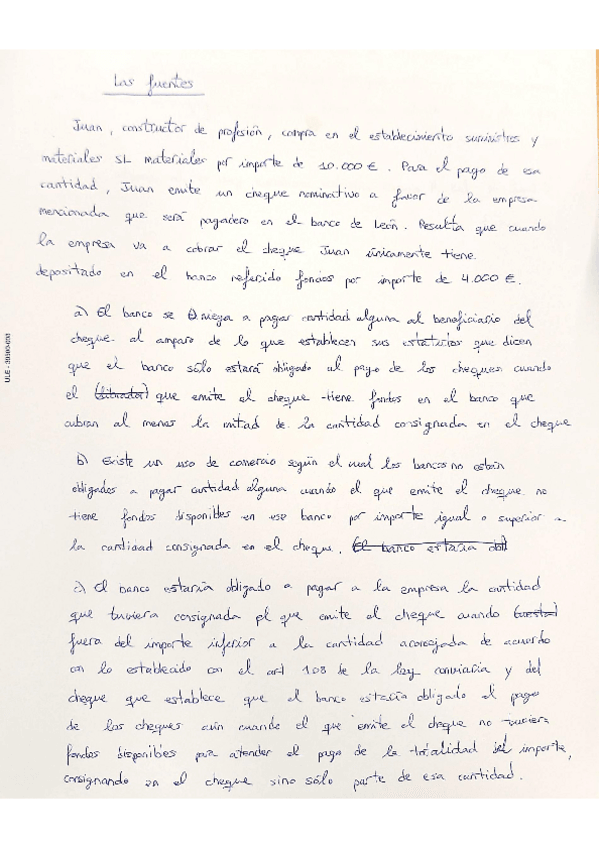 Las fuentes
Juan, constructor de profesión, compra en el establecimiento suministros y
materiales SL materiales por importe de 10.000 €. Para el pago de esa
cantidad, Juan emite un cheque nominativo a favor de la empresa
mencionada que será pagadero en el banco de León. Resulta que cuando
la empresa va a cobrar el cheque Juan únicamente tiene
depositado en el banco referido fondos por importe de 4.000 €.
a) El banco se niega a pagar cantidad alguna al beneficiario del
cheque. al amparo de lo que establecen sus estatutos que dicen
que el banco sólo estará obligado al pago de los cheques cuando
el (librador) que emite el cheque tiene fondos en el banco que
cubran al menos la mitad de la cantidad consignada en el cheque
b) Existe un uso de comercio según el cual los bancos no están
obligados a pagar cantidad alguna cuando el que emite el cheque no
tiene fondos disponibles en ese banco por importe igual o superior a
la cantidad consignada en el cheque. El banco estaría obl
c) El banco estaría obligado a pagar a la empresa la cantidad
que tuviera consignada el que emite el cheque cuando
fuera del importe inferior a la cantidad de acuerdo
con lo establecido con el art 108 de la ley y del
cheque que establece que el banco estaría obligado al pago
de los cheques aún cuando el que emite el cheque no tuviera
fondos disponibles para atender el pago de la totalidad del importe,
consignando en el cheque sino sólo parte de esa cantidad.
ULE - 3990-693